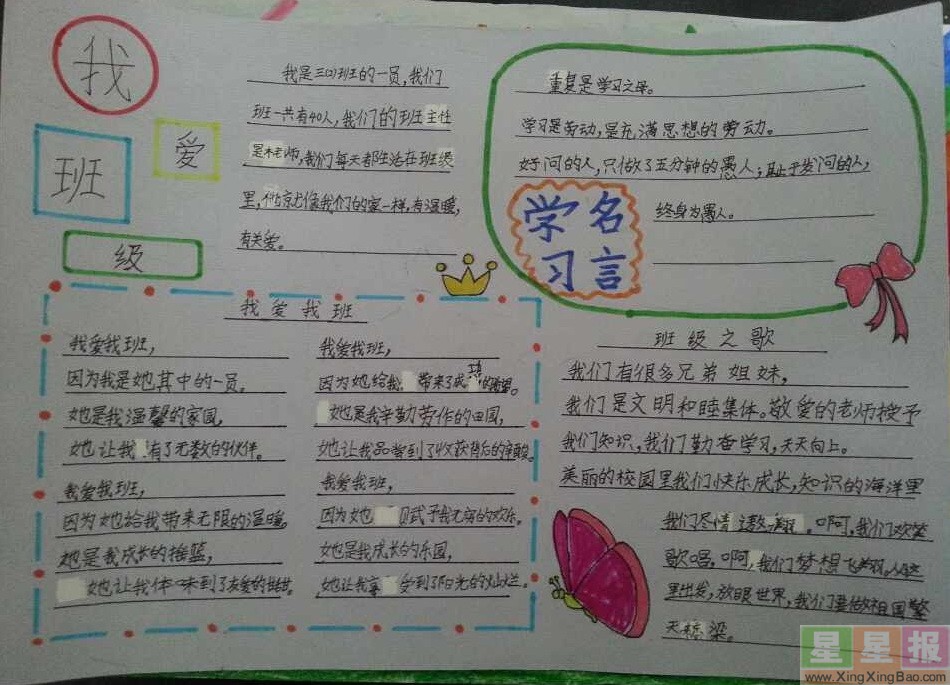 我
爱
班
级
我是三(2)班的一员,我们
班一共有40人,我们的班主任
是林老师,我们每天都生活在班级
里,他就像我们的家一样,有温暖,
有关爱。
重复是学习之母。
学习是劳动,是充满思想的劳动。
好问的人,只做了五分钟的愚人;耻于发问的人,
终身为愚人。
学习
名言
我爱我班
我爱我班,
因为我是她其中的一员。
她是我温馨的家园,
她让我有了无数的伙伴。
我爱我班,
因为她给我带来无限的温暖。
她是我成长的摇篮,
她让我体味到了友爱的
我爱我班,
因为她给我带来了成 的希望。
她是我辛勤劳作的田园,
她让我品尝到了收获背后的辛酸。
我爱我班,
因为她赋予我无穷的欢乐。
她是我成长的乐园,
她让我享受到了阳光的灿烂。
班级之歌
我们有很多兄弟姐妹,
我们是文明和睦集体。敬爱的老师授予
我们知识,我们勤奋学习,天天向上。
美丽的校园里我们快乐成长,知识的海洋里
我们尽情遨翔。啊,我们欢繁
歌唱。啊,我们梦想飞翔。从这
里出发,放眼世界,我们要做祖国擎
天桥梁。
星星报
www.XingXingBao.com